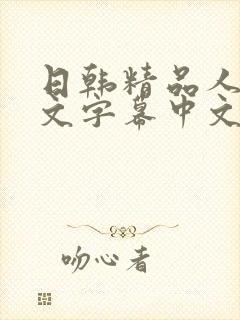 日韩精品人
文字幕中文
吻心者